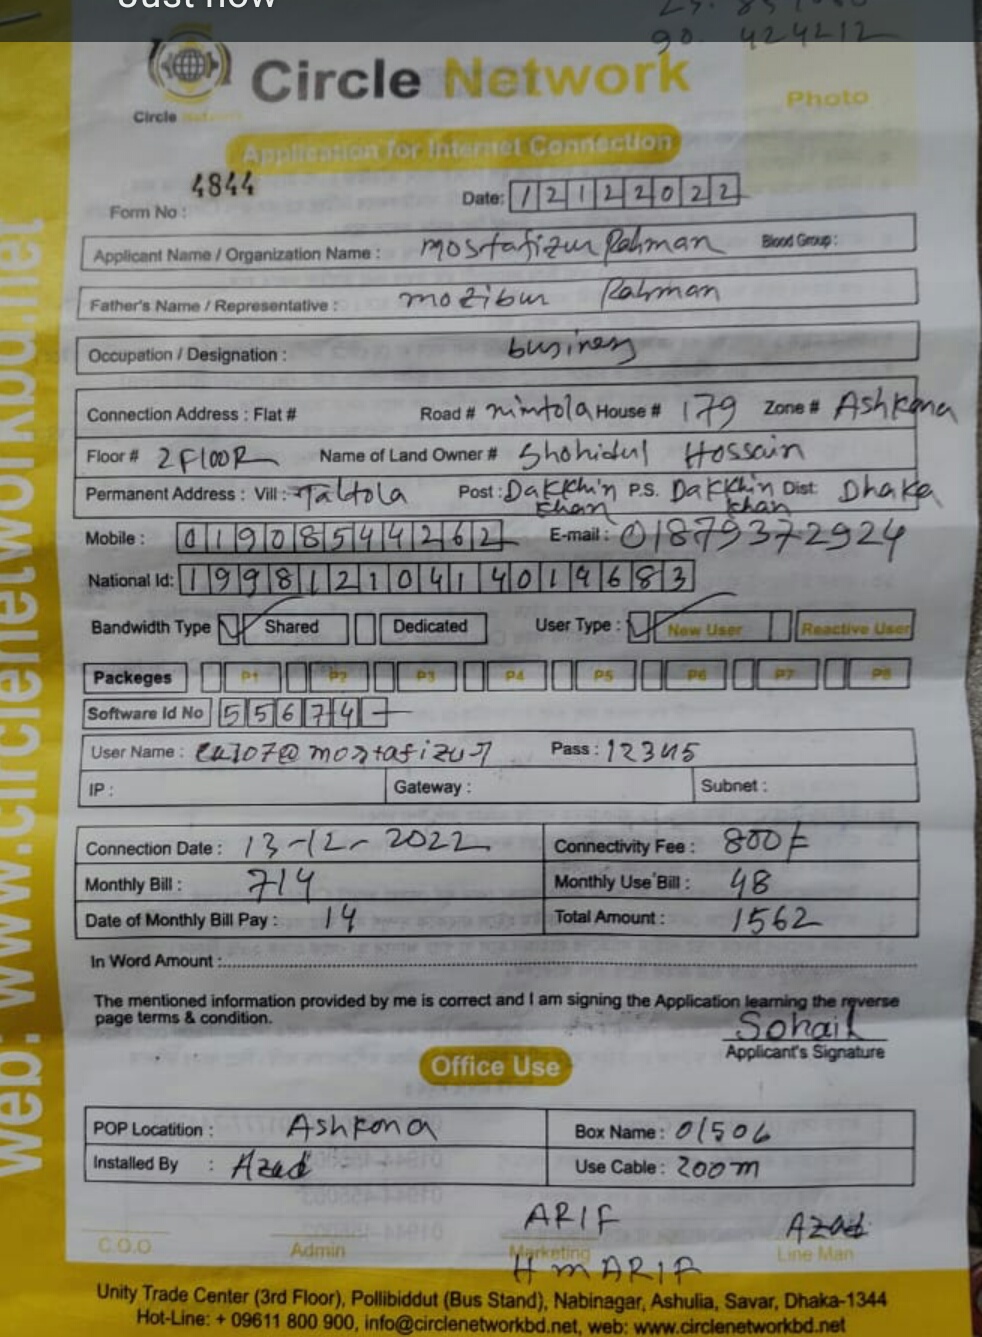 Just now
90. 424212
Circle Network
Circle Network
Photo
Application for Internet Connection
Form No : 4844
Date: 12122022
Applicant Name / Organization Name : mostafizur Rahman Blood Group :
Father's Name / Representative : mozibur Rahman
Occupation / Designation : business
Connection Address : Flat # Road # nimtola House # 179 Zone # Ashkona
Floor # 2 FlooR Name of Land Owner # Shohidul Hossain
Permanent Address : Vill : Taltola Post : Dakkhin khan P.S. Dakkhin khan Dist Dhaka
Mobile : 01908544262 E-mail : 01879372924
National Id: 19981210414019683
Bandwidth Type Shared Dedicated User Type : New User Reactive User
Packeges P1 P2 P3 P4 P5 P6 P7 P8
Software Id No 55674
User Name : mostafizur Pass : 12345
IP : Gateway : Subnet :
Connection Date : 13-12-2022 Connectivity Fee : 800/=
Monthly Bill : 714 Monthly Use Bill : 48
Date of Monthly Bill Pay : 14 Total Amount : 1562
In Word Amount :
The mentioned information provided by me is correct and I am signing the Application learning the reverse
page terms & condition.
Sohail
Applicant's Signature
Office Use
POP Locatition : Ashkona Box Name : 01506
Installed By : Azad Use Cable : 200m
ARIF Azad
C.O.O Admin Marketing Line Man
H m ARIF
Unity Trade Center (3rd Floor), Pollibiddut (Bus Stand), Nabinagar, Ashulia, Savar, Dhaka-1344
Hot-Line: + 09611 800 900, info@circlenetworkbd.net, web: www.circlenetworkbd.net
web: www.circlenetworkbd.net